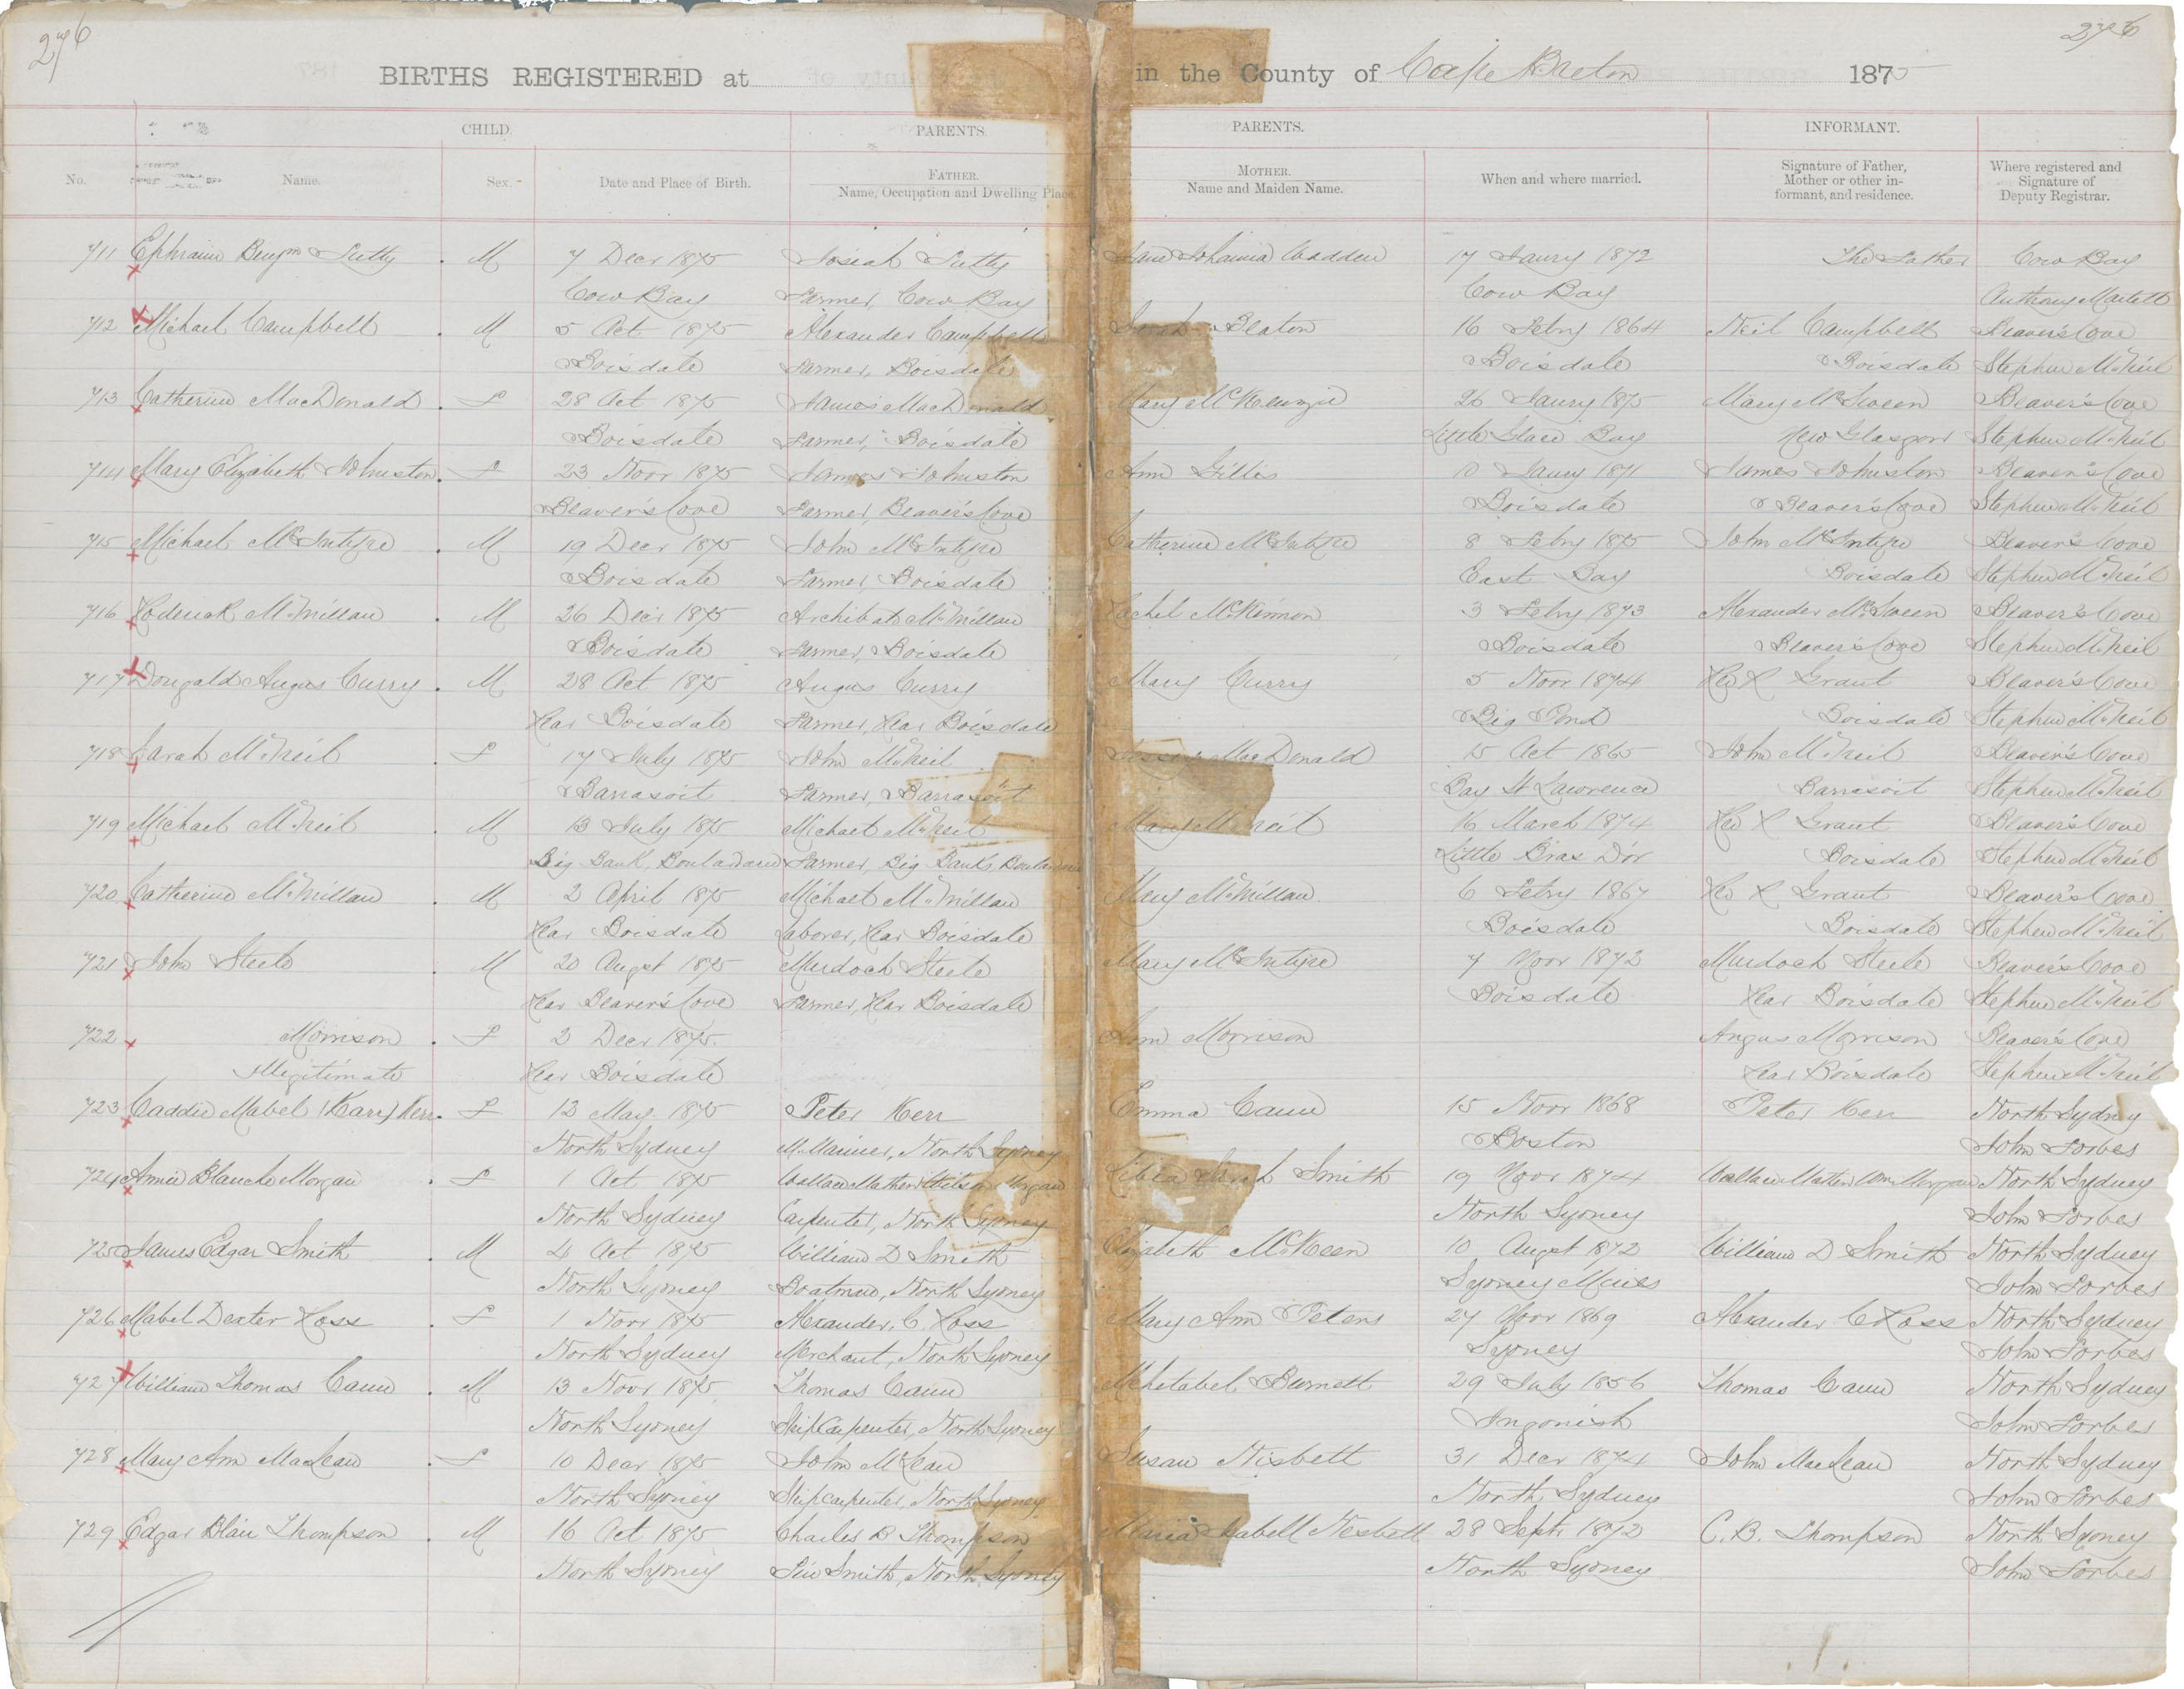 276
276
BIRTHS REGISTERED at in the County of Cape Breton 1875
CHILD. PARENTS. PARENTS. INFORMANT.
No. Name. Sex. Date and Place of Birth. FATHER. Name, Occupation and Dwelling Place. MOTHER. Name and Maiden Name. When and where married. Signature of Father, Mother or other informant, and residence. Where registered and Signature of Deputy Registrar.
711 Ephraim Benjm Tutty M 7 Decr 1875 Josiah Tutty Jane Johanna Wadden 17 Jany 1872 The Father Cow Bay
Cow Bay Farmer, Cow Bay Cow Bay Anthony Martell
712 Michael Campbell M 5 Oct 1875 Alexander Campbell Beaton 16 Feby 1864 Neil Campbell Beaver's Cove
Boisdale Farmer, Boisdale Boisdale Boisdale Stephen McNeil
713 Catherine MacDonald F 28 Oct 1875 James MacDonald Mary McKenzie 26 Jany 1875 Mary McSween Beaver's Cove
Boisdale Farmer, Boisdale Little Glace Bay New Glasgow Stephen McNeil
714 Mary Elizabeth Johnston F 23 Novr 1875 James Johnston Ann Gillis 10 Jany 1871 James Johnston Beaver's Cove
Beaver's Cove Farmer, Beaver's Cove Boisdale Beaver's Cove Stephen McNeil
715 Michael McIntyre M 19 Decr 1875 John McIntyre Catherine McIntyre 8 Feby 1875 John McIntyre Beaver's Cove
Boisdale Farmer, Boisdale East Bay Boisdale Stephen McNeil
716 Roderick McMillan M 26 Decr 1875 Archibald McMillan Rachel McKinnon 3 Feby 1873 Alexander McSween Beaver's Cove
Boisdale Farmer, Boisdale Boisdale Beaver's Cove Stephen McNeil
717 Dougald Angus Curry M 28 Oct 1875 Angus Curry Mary Curry 5 Novr 1874 X Grant Beaver's Cove
Rear Boisdale Farmer, Rear Boisdale Big Pond Boisdale Stephen McNeil
718 Sarah McNeil F 17 July 1875 John McNeil MacDonald 15 Oct 1865 John McNeil Beaver's Cove
Barrasoit Farmer, Barrasoit Bay St Lawrence Barrasoit Stephen McNeil
719 Michael McNeil M 13 July 1875 Michael McNeil Mary McNeil 16 March 1874 X Grant Beaver's Cove
Big Bank, Boulardarie Farmer, Big Bank, Boulardarie Little Bras D'or Boisdale Stephen McNeil
720 Catherine McMillan M 2 April 1875 Michael McMillan Mary McMillan 6 Feby 1867 X Grant Beaver's Cove
Rear Boisdale Laborer, Rear Boisdale Boisdale Boisdale Stephen McNeil
721 John Steele M 20 Augst 1875 Murdoch Steele Mary McIntyre 7 Novr 1872 Murdoch Steele Beaver's Cove
Rear Beaver's Cove Farmer, Rear Boisdale Boisdale Rear Boisdale Stephen McNeil
722 Morrison F 2 Decr 1875 Ann Morrison Angus Morrison Beaver's Cove
Illegitimate Rear Boisdale Rear Boisdale Stephen McNeil
723 Caddie Mabel (Karr) Kerr F 12 May 1875 Peter Kerr Emma Cann 15 Novr 1868 Peter Kerr North Sydney
North Sydney M. Mariner, North Sydney Boston John Forbes
724 Annie Blanche Morgan F 1 Oct 1875 Wallace Mather Wilson Morgan Sarah Smith 19 Novr 1874 Wallace Mather Wm Morgan North Sydney
North Sydney Carpenter, North Sydney North Sydney John Forbes
725 James Edgar Smith M 4 Oct 1875 William D Smith Elizabeth McKeen 10 Augst 1872 William D Smith North Sydney
North Sydney Boatman, North Sydney Sydney Mines John Forbes
726 Mabel Dexter Ross F 1 Novr 1875 Alexander C. Ross Mary Ann Peters 27 Novr 1869 Alexander C Ross North Sydney
North Sydney Merchant, North Sydney Sydney John Forbes
727 William Thomas Cann M 13 Novr 1875 Thomas Cann Mehetabel Burnett 29 July 1856 Thomas Cann North Sydney
North Sydney Ship Carpenter, North Sydney Ingonish John Forbes
728 Mary Ann MacLean F 10 Decr 1875 John McLean Susan Nisbett 31 Decr 1874 John MacLean North Sydney
North Sydney Ship carpenter, North Sydney North Sydney John Forbes
729 Edgar Blair Thompson M 16 Oct 1875 Charles B Thompson Maria Isabell Nesbett 28 Septr 1872 C. B. Thompson North Sydney
North Sydney Tin Smith, North Sydney North Sydney John Forbes